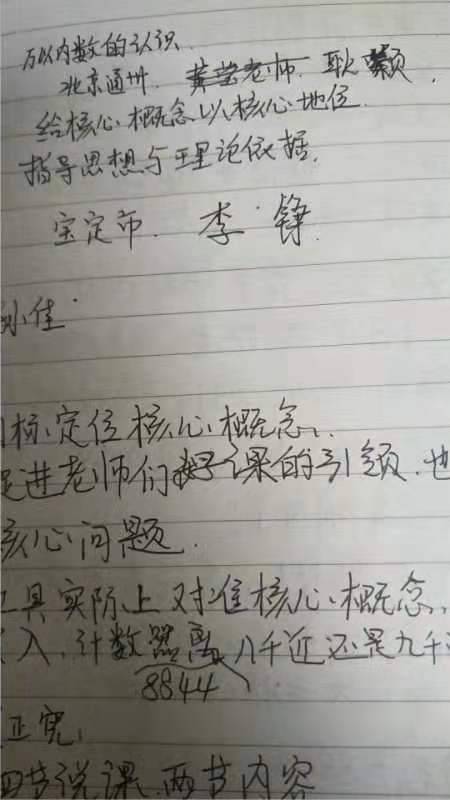 万以内数的认识
北京通州. 黄莹老师. 耿颖.
给核心概念以核心地位.
指导思想与理论依据.
宝定市. 李铮.
小佳
标定位核心概念.
促进老师们好课的引领.也
核心问题.
工具实际上对准核心概念.
入,计数器离八千近还是九千
8844
正宽;
四节说课.两节内容